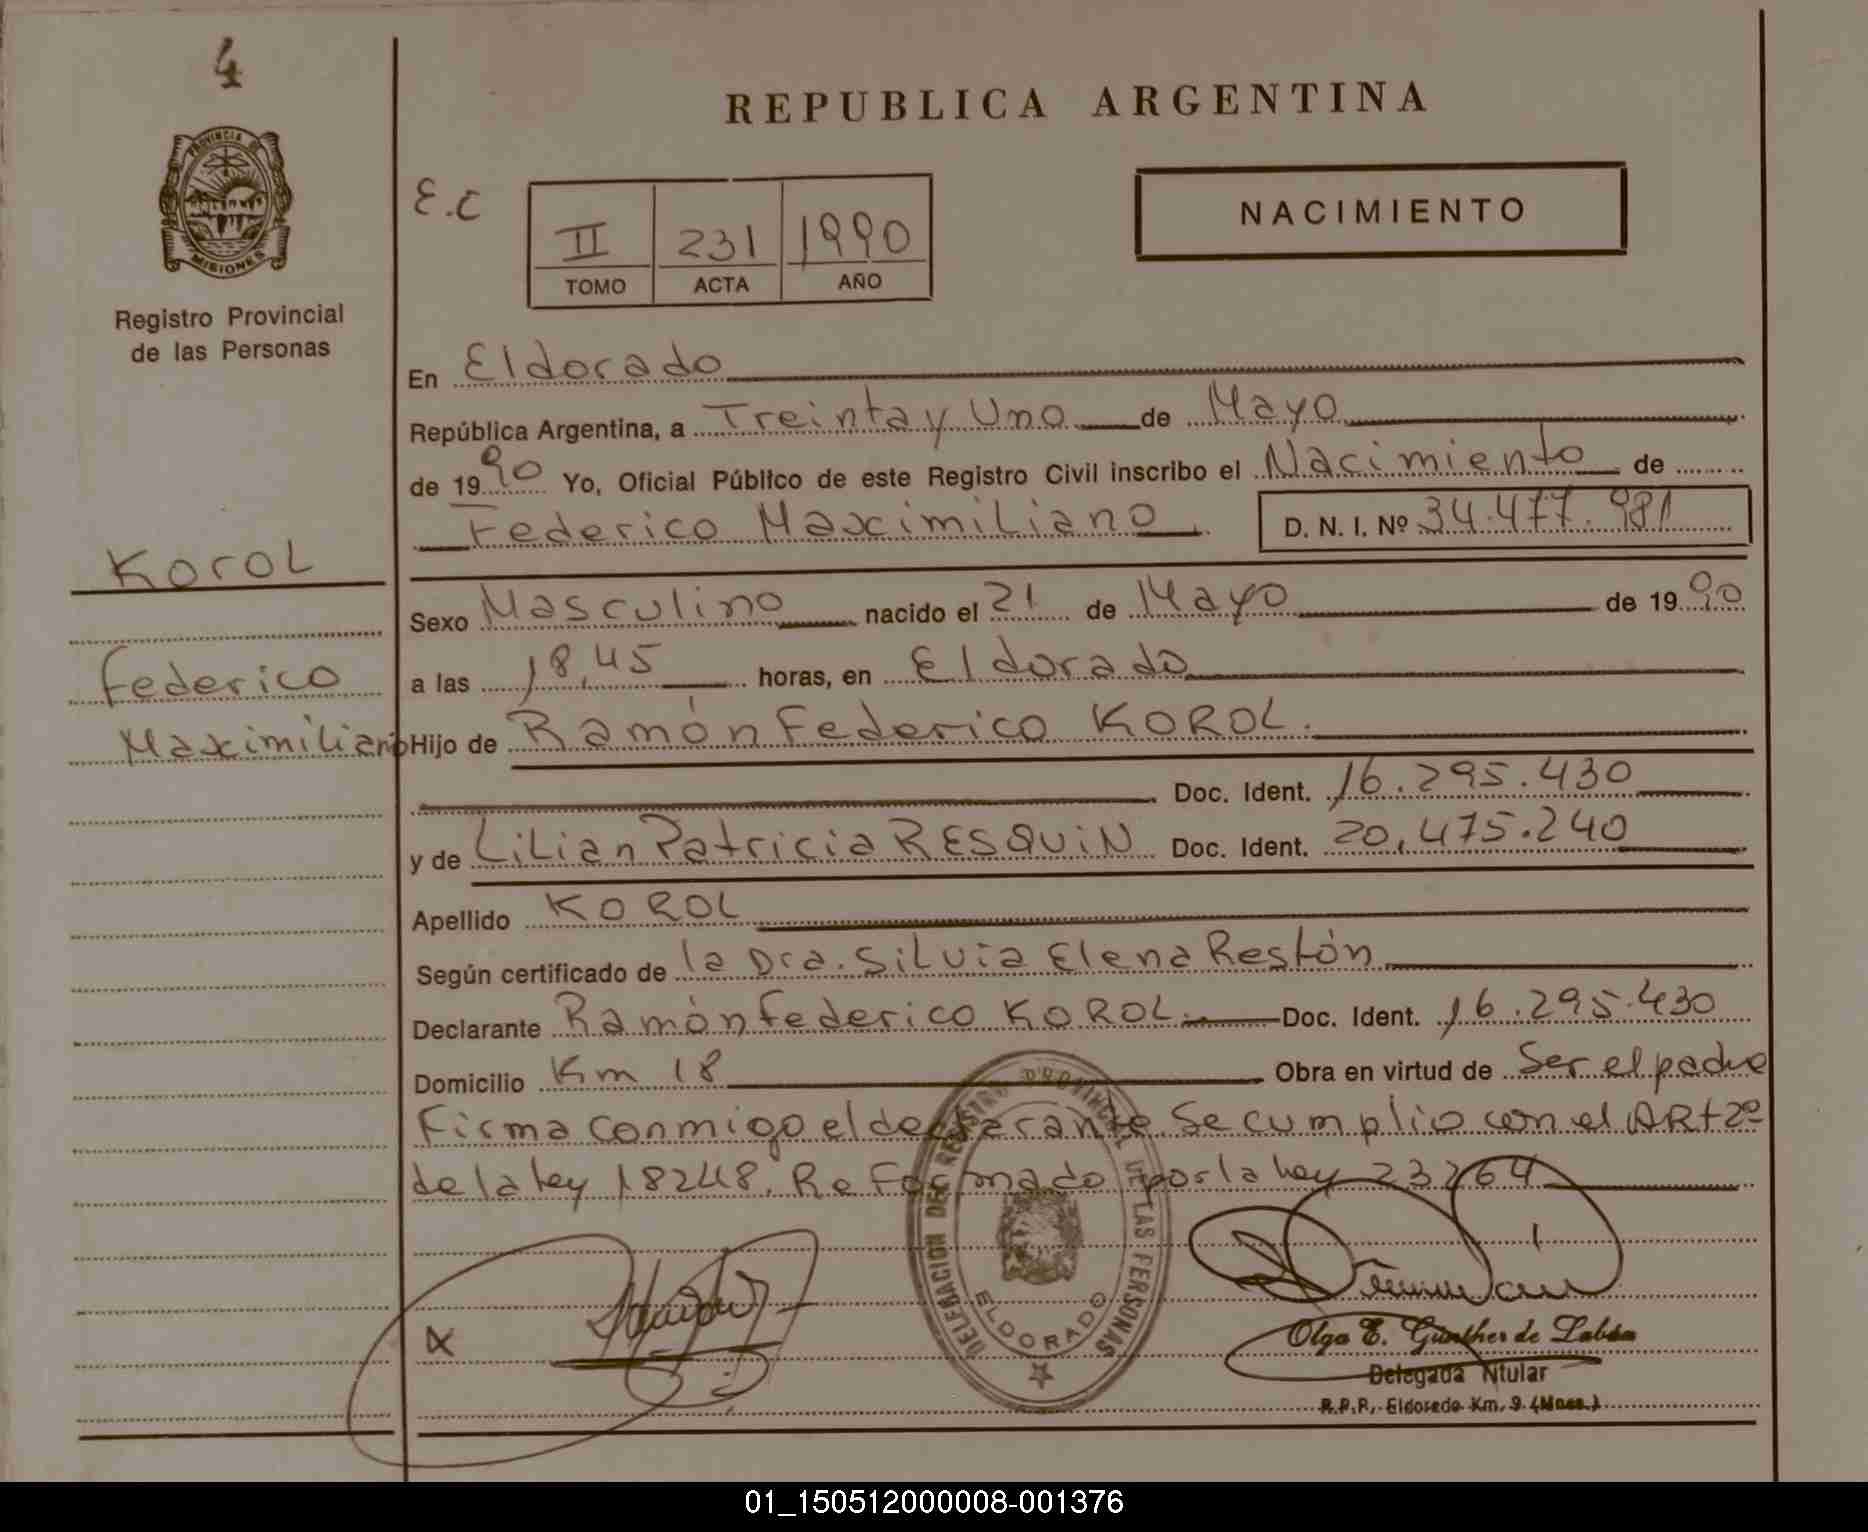 4
PROVINCIA DE
MISIONES
Registro Provincial
de las Personas
Korol
Federico
Maximiliano
REPUBLICA ARGENTINA
E.C
II 231 1990
TOMO ACTA AÑO
NACIMIENTO
En Eldorado
República Argentina, a Treinta y Uno de Mayo
de 1990 Yo, Oficial Público de este Registro Civil inscribo el Nacimiento de
Federico Maximiliano D. N. I. Nº 34.477.981
Sexo Masculino nacido el 21 de Mayo de 1990
a las 18,45 horas, en Eldorado
Hijo de Ramón Federico KOROL.
Doc. Ident. 16.295.430
y de Lilian Patricia RESQUIN Doc. Ident. 20.475.240
Apellido KOROL
Según certificado de la Dra. Silvia Elena Restón
Declarante Ramón Federico KOROL Doc. Ident. 16.295.430
Domicilio Km 18 Obra en virtud de Ser el padre
Firma conmigo el declarante Se cumplio con el ARt 2º
de la ley 18248. Reformado por la ley 23264
DELEGACION DEL REGISTRO PROVINCIAL DE LAS PERSONAS
ELDORADO
Olga E. Günther de Labán
Delegada Titular
R.P.P. Eldorado Km. 9 (Mnes.)
01_150512000008-001376